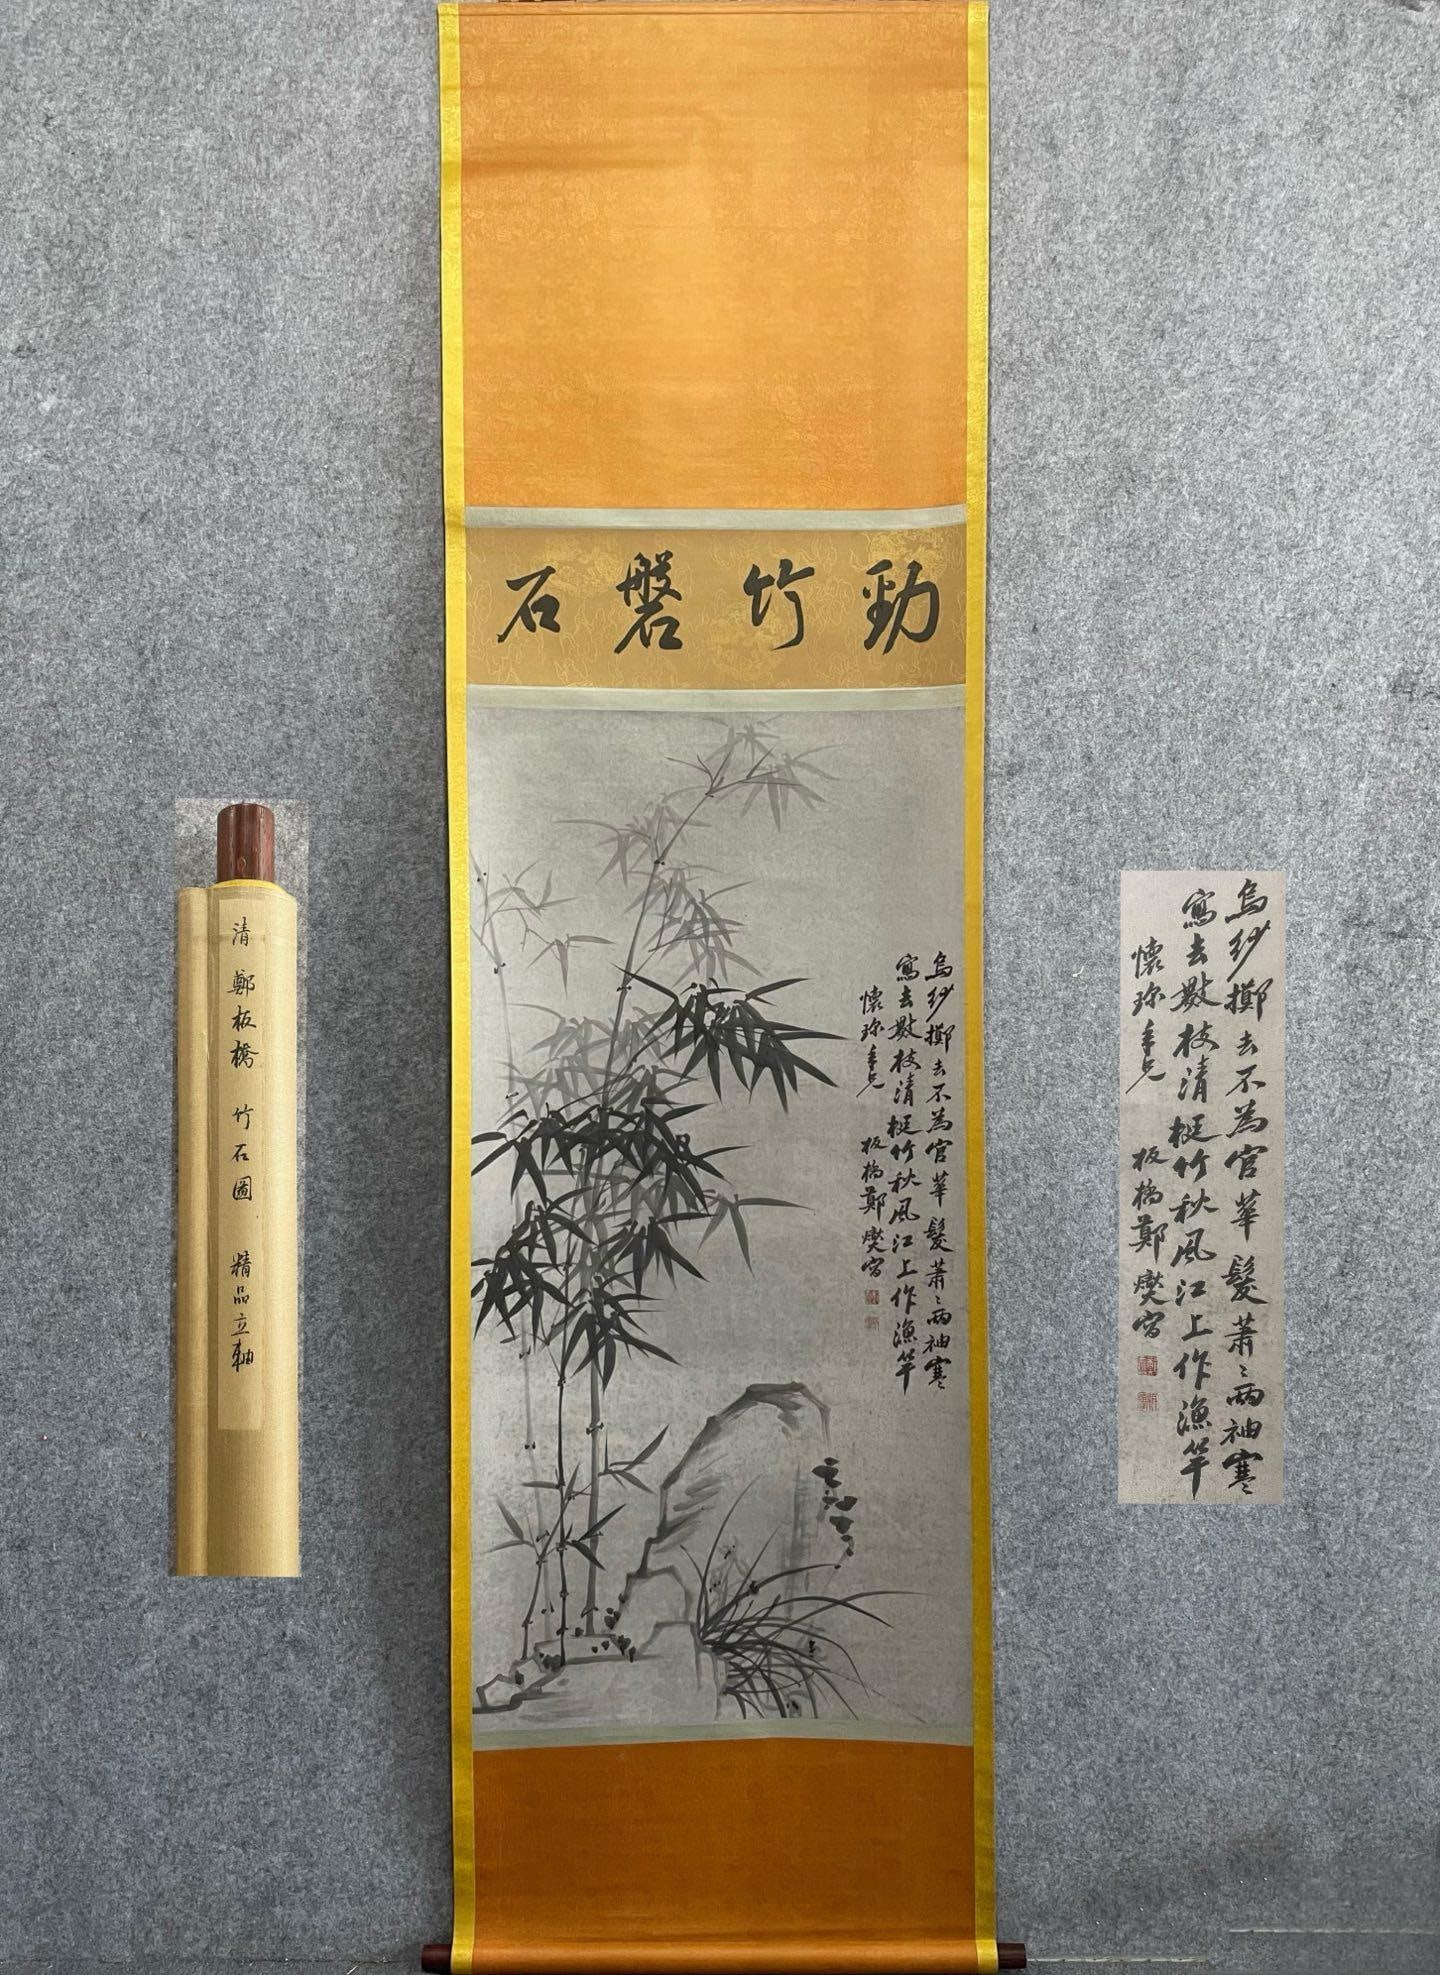 勁竹磐石
烏紗擲去不為官華髮蕭〻兩袖寒
寫去數枝清挺竹秋風江上作漁竿
懷珎年兄
板橋鄭燮寫
清 鄭板橋 竹石圖 精品立軸
烏紗擲去不為官華髮蕭〻兩袖寒
寫去數枝清挺竹秋風江上作漁竿
懷珎年兄
板橋鄭燮寫